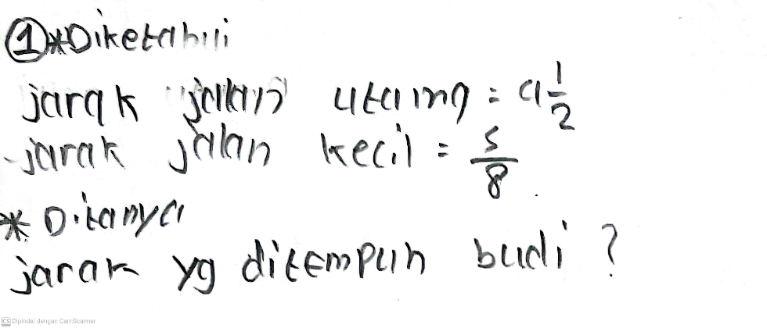 ① * Diketahui
jarak jalan utama = 9 1/2
- jarak jalan kecil = 5/8
* Ditanya
jarak yg ditempuh budi ?
Dipindai dengan CamScanner